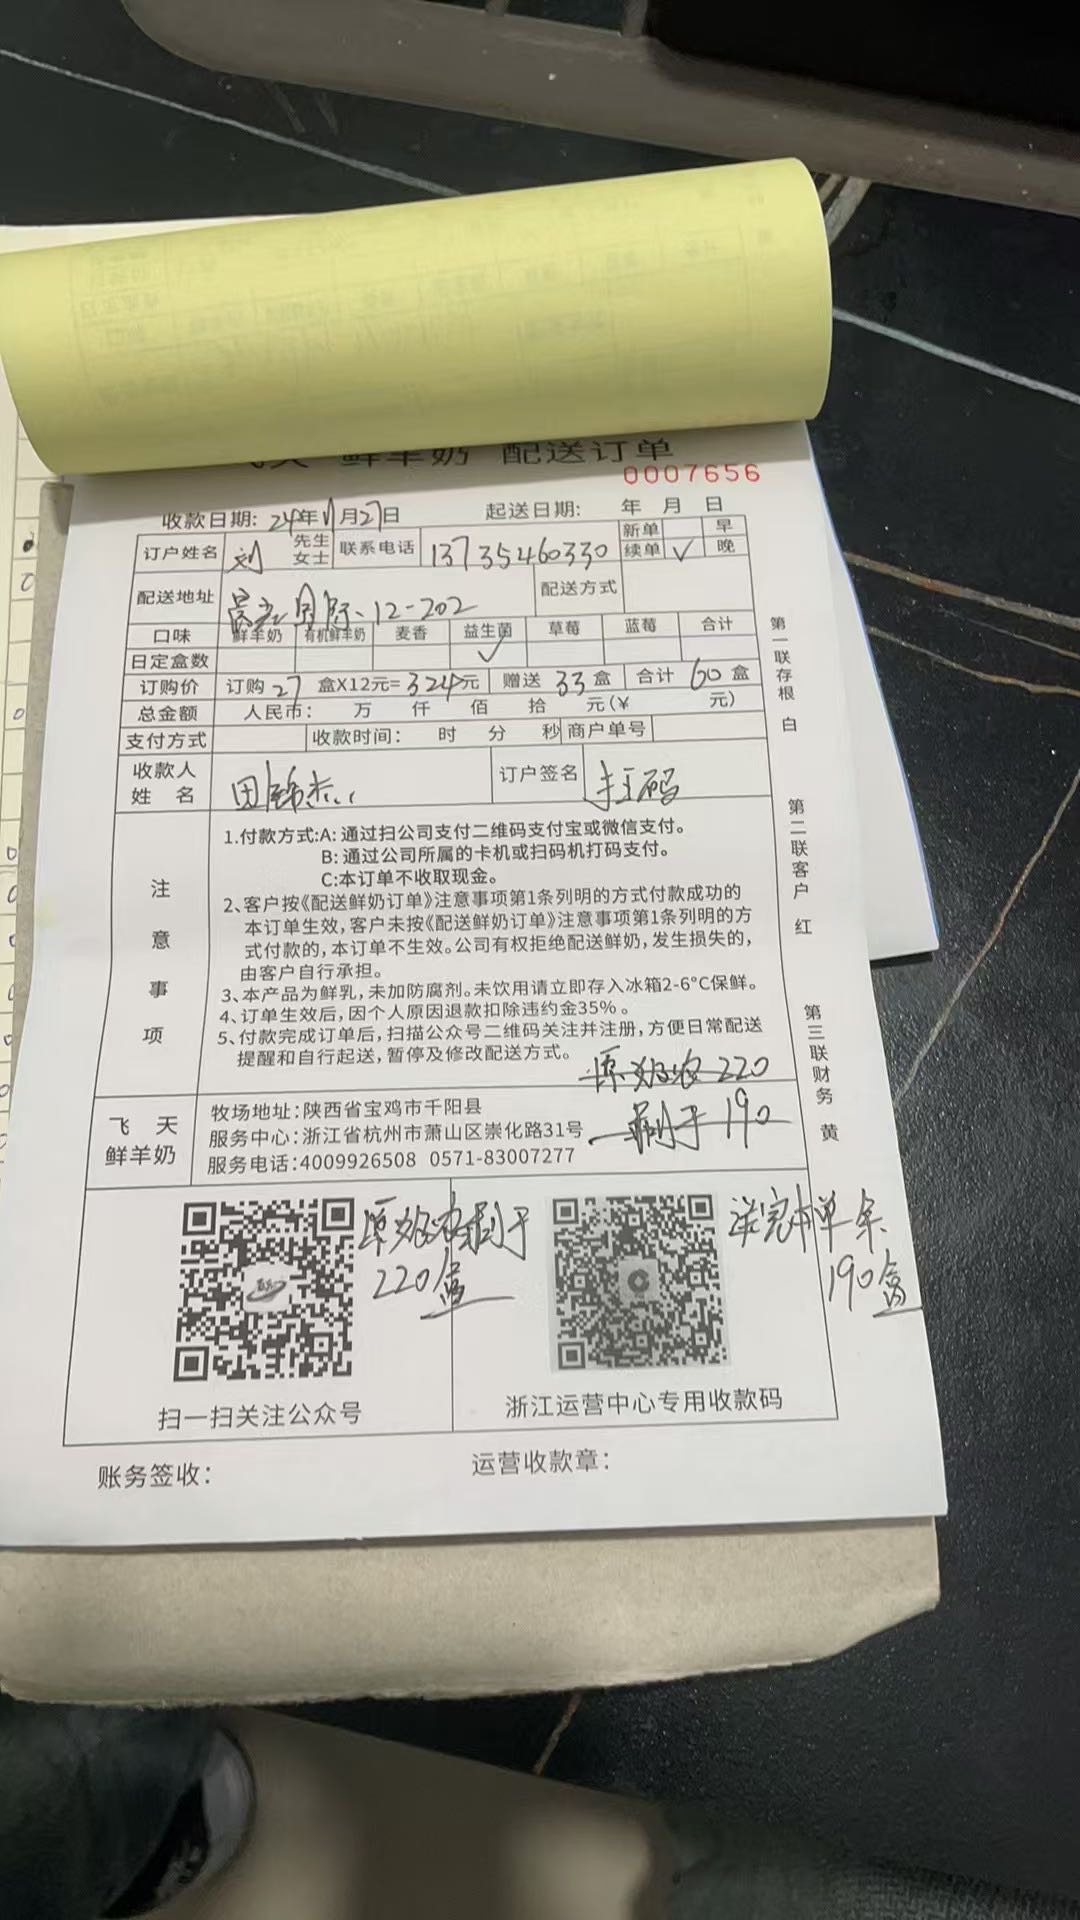 鲜羊奶 配送订单
0007656
收款日期: 24年11月27日 起送日期: 年 月 日
订户姓名 刘 先生 女士 联系电话 13735460330 新单 续单 ✓ 早 晚
配送地址 国际 12-202 配送方式
口味 鲜羊奶 有机鲜羊奶 麦香 益生菌 草莓 蓝莓 合计
日定盒数 ✓
订购价 订购 27 盒X12元= 324元 赠送 33 盒 合计 60 盒
总金额 人民币: 万 仟 佰 拾 元(¥ 元)
支付方式 收款时间: 时 分 秒 商户单号
收款人 姓 名 田锦杰 订户签名 扫码
注意事项
1.付款方式:A: 通过扫公司支付二维码支付宝或微信支付。
B: 通过公司所属的卡机或扫码机打码支付。
C:本订单不收取现金。
2、客户按《配送鲜奶订单》注意事项第1条列明的方式付款成功的
本订单生效,客户未按《配送鲜奶订单》注意事项第1条列明的方
式付款的,本订单不生效。公司有权拒绝配送鲜奶,发生损失的,
由客户自行承担。
3、本产品为鲜乳,未加防腐剂。未饮用请立即存入冰箱2-6°C保鲜。
4、订单生效后,因个人原因退款扣除违约金35%。
5、付款完成订单后,扫描公众号二维码关注并注册,方便日常配送
提醒和自行起送,暂停及修改配送方式。
220
190
飞天
鲜羊奶
牧场地址:陕西省宝鸡市千阳县
服务中心:浙江省杭州市萧山区崇化路31号
服务电话:4009926508 0571-83007277
220盒
送完本单余
190盒
扫一扫关注公众号
浙江运营中心专用收款码
账务签收:
运营收款章:
第一联存根 白
第二联客户 红
第三联财务 黄